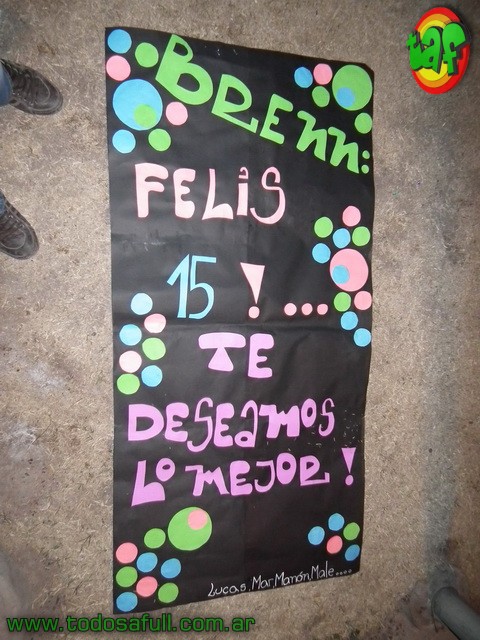 taf
BRENN:
FELIS
15 ! ...
TE
DESEAMOS
LO MEJOR !
Lucas, Mar, Manón, Male....
www.todosafull.com.ar